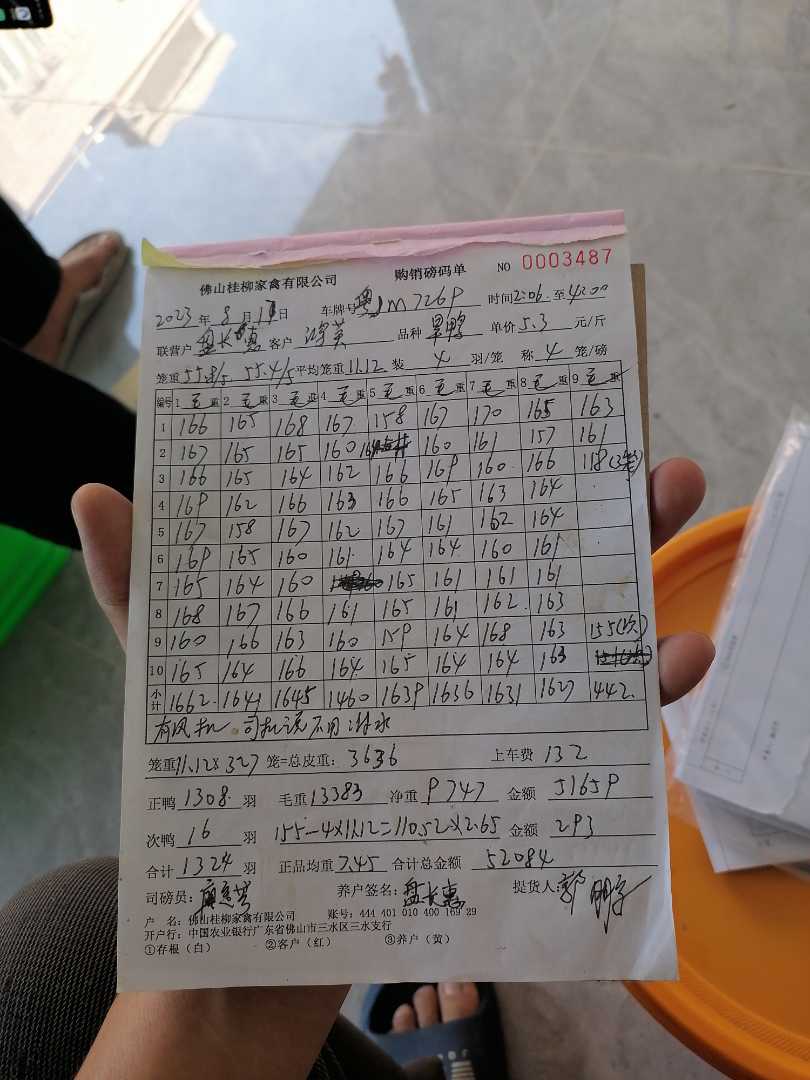 佛山桂柳家禽有限公司 购销磅码单 NO 0003487
2023年8月17日 车牌号粤JM726P 时间2:06至4:00
联营户 盘长惠 客户 品种 鸭 单价5.3元/斤
笼重55.8/5 55.4/5平均笼重11.12装 4 羽/笼 称 4 笼/磅
编号 1毛重 2毛重 3毛重 4毛重 5毛重 6毛重 7毛重 8毛重 9毛重
1 166 165 168 167 158 167 170 165 163
2 167 165 165 160 160 161 157 161
3 166 165 164 162 166 169 160 166 118(3笼)
4 169 162 166 163 166 165 163 164
5 167 158 167 162 167 161 162 164
6 169 165 160 161 164 164 160 161
7 165 164 160 165 161 161 161
8 168 167 166 161 165 161 162 163
9 160 166 163 160 159 164 168 163 155(次)
10 165 164 166 164 165 164 164 163
小计 1662 1641 1645 1460 1639 1636 1631 1627 442
有风机 司机说不用淋水
笼重11.12×327笼=总皮重:3636 上车费 132
正鸭 1308 羽 毛重13383 净重 9747 金额 51659
次鸭 16 羽 155-4×11.12=110.52×2.65 金额 293
合计 1324 羽 正品均重7.45 合计总金额 52084
司磅员: 养户签名:盘长惠 提货人:郭
户 名:佛山桂柳家禽有限公司 账号:444 401 010 400 169 29
开户行:中国农业银行广东省佛山市三水区三水支行
①存根(白) ②客户(红) ③养户(黄)